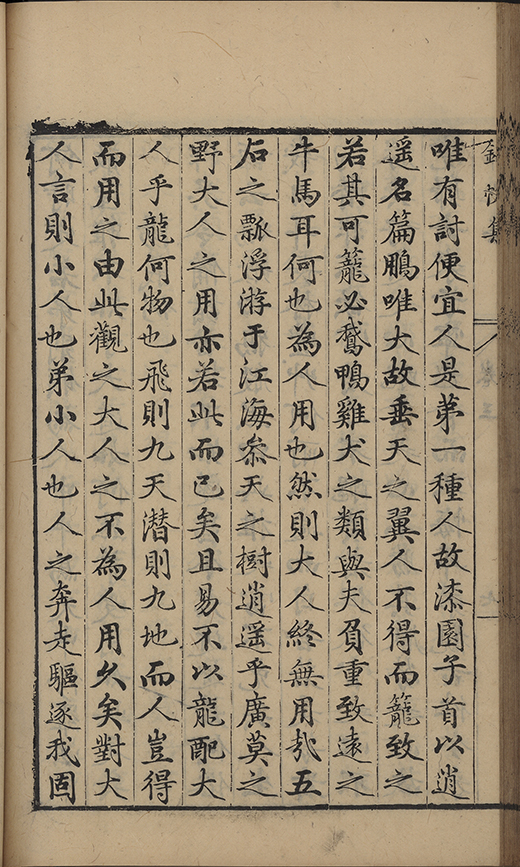 唯有討便宜人是第一種人故漆園子首以逍
遥名篇鵬唯大故垂天之翼人不得而籠致之
若其可籠必鵞鴨雞犬之類與夫負重致遠之
牛馬耳何也為人用也然則大人終無用哉五
石之瓢浮游于江海叅天之樹逍遥乎廣莫之
野大人之用亦若此而已矣且易不以龍配大
人乎龍何物也飛則九天潜則九地而人豈得
而用之由此觀之大人之不為人用久矣對大
人言則小人也苐小人也人之奔走驅逐我固